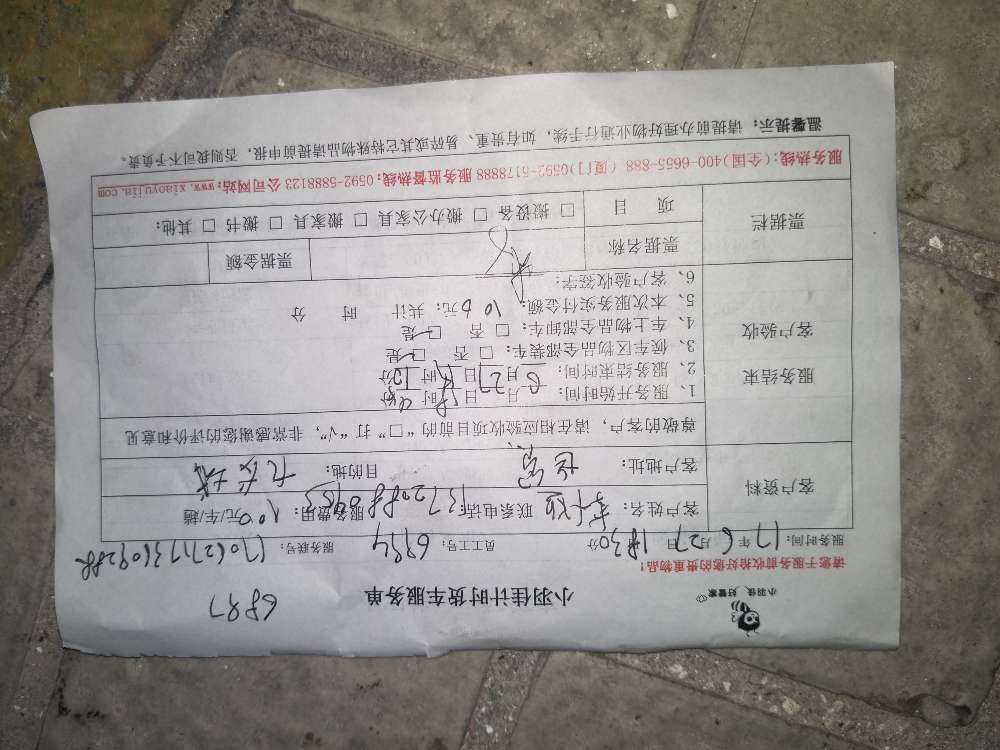 小羽佳 好管家
小羽佳计时货车服务单
6887
请您于服务前收拾好您的贵重物品!
服务时间: 17年6月27日18时30分 员工工号: 6994 服务联号:
客户资料
客户姓名: 联系电话: 服务费用: 100元/车/趟
客户地址: 目的地:
尊敬的客户,请在相应验收项目前的“□”打“√”,非常感谢您的评价和意见
服务结束
客户验收
1、服务开始时间: 月 日 时 分
2、服务结束时间: 6月27日 时 分
3、候车区物品全部装车: □ 否 □ 是
4、车上物品全部卸车: □ 否 □ 是
5、本次服务实付金额: 100元; 共计 时 分
6、客户验收签字:
票据栏
票据名称 票据金额
项 目 □ 搬设备 □ 搬办公家具 □ 搬家具 □ 搬书 □ 其他:
服务热线:(全国)400-6655-888 (厦门)0592-5178888 服务监督热线:0592-5888123 公司网站:www.xiaoyujia.com
温馨提示: 请提前办理好物业通行手续,如有贵重、易碎或其它特殊物品请提前申报,否则我司不予负责。